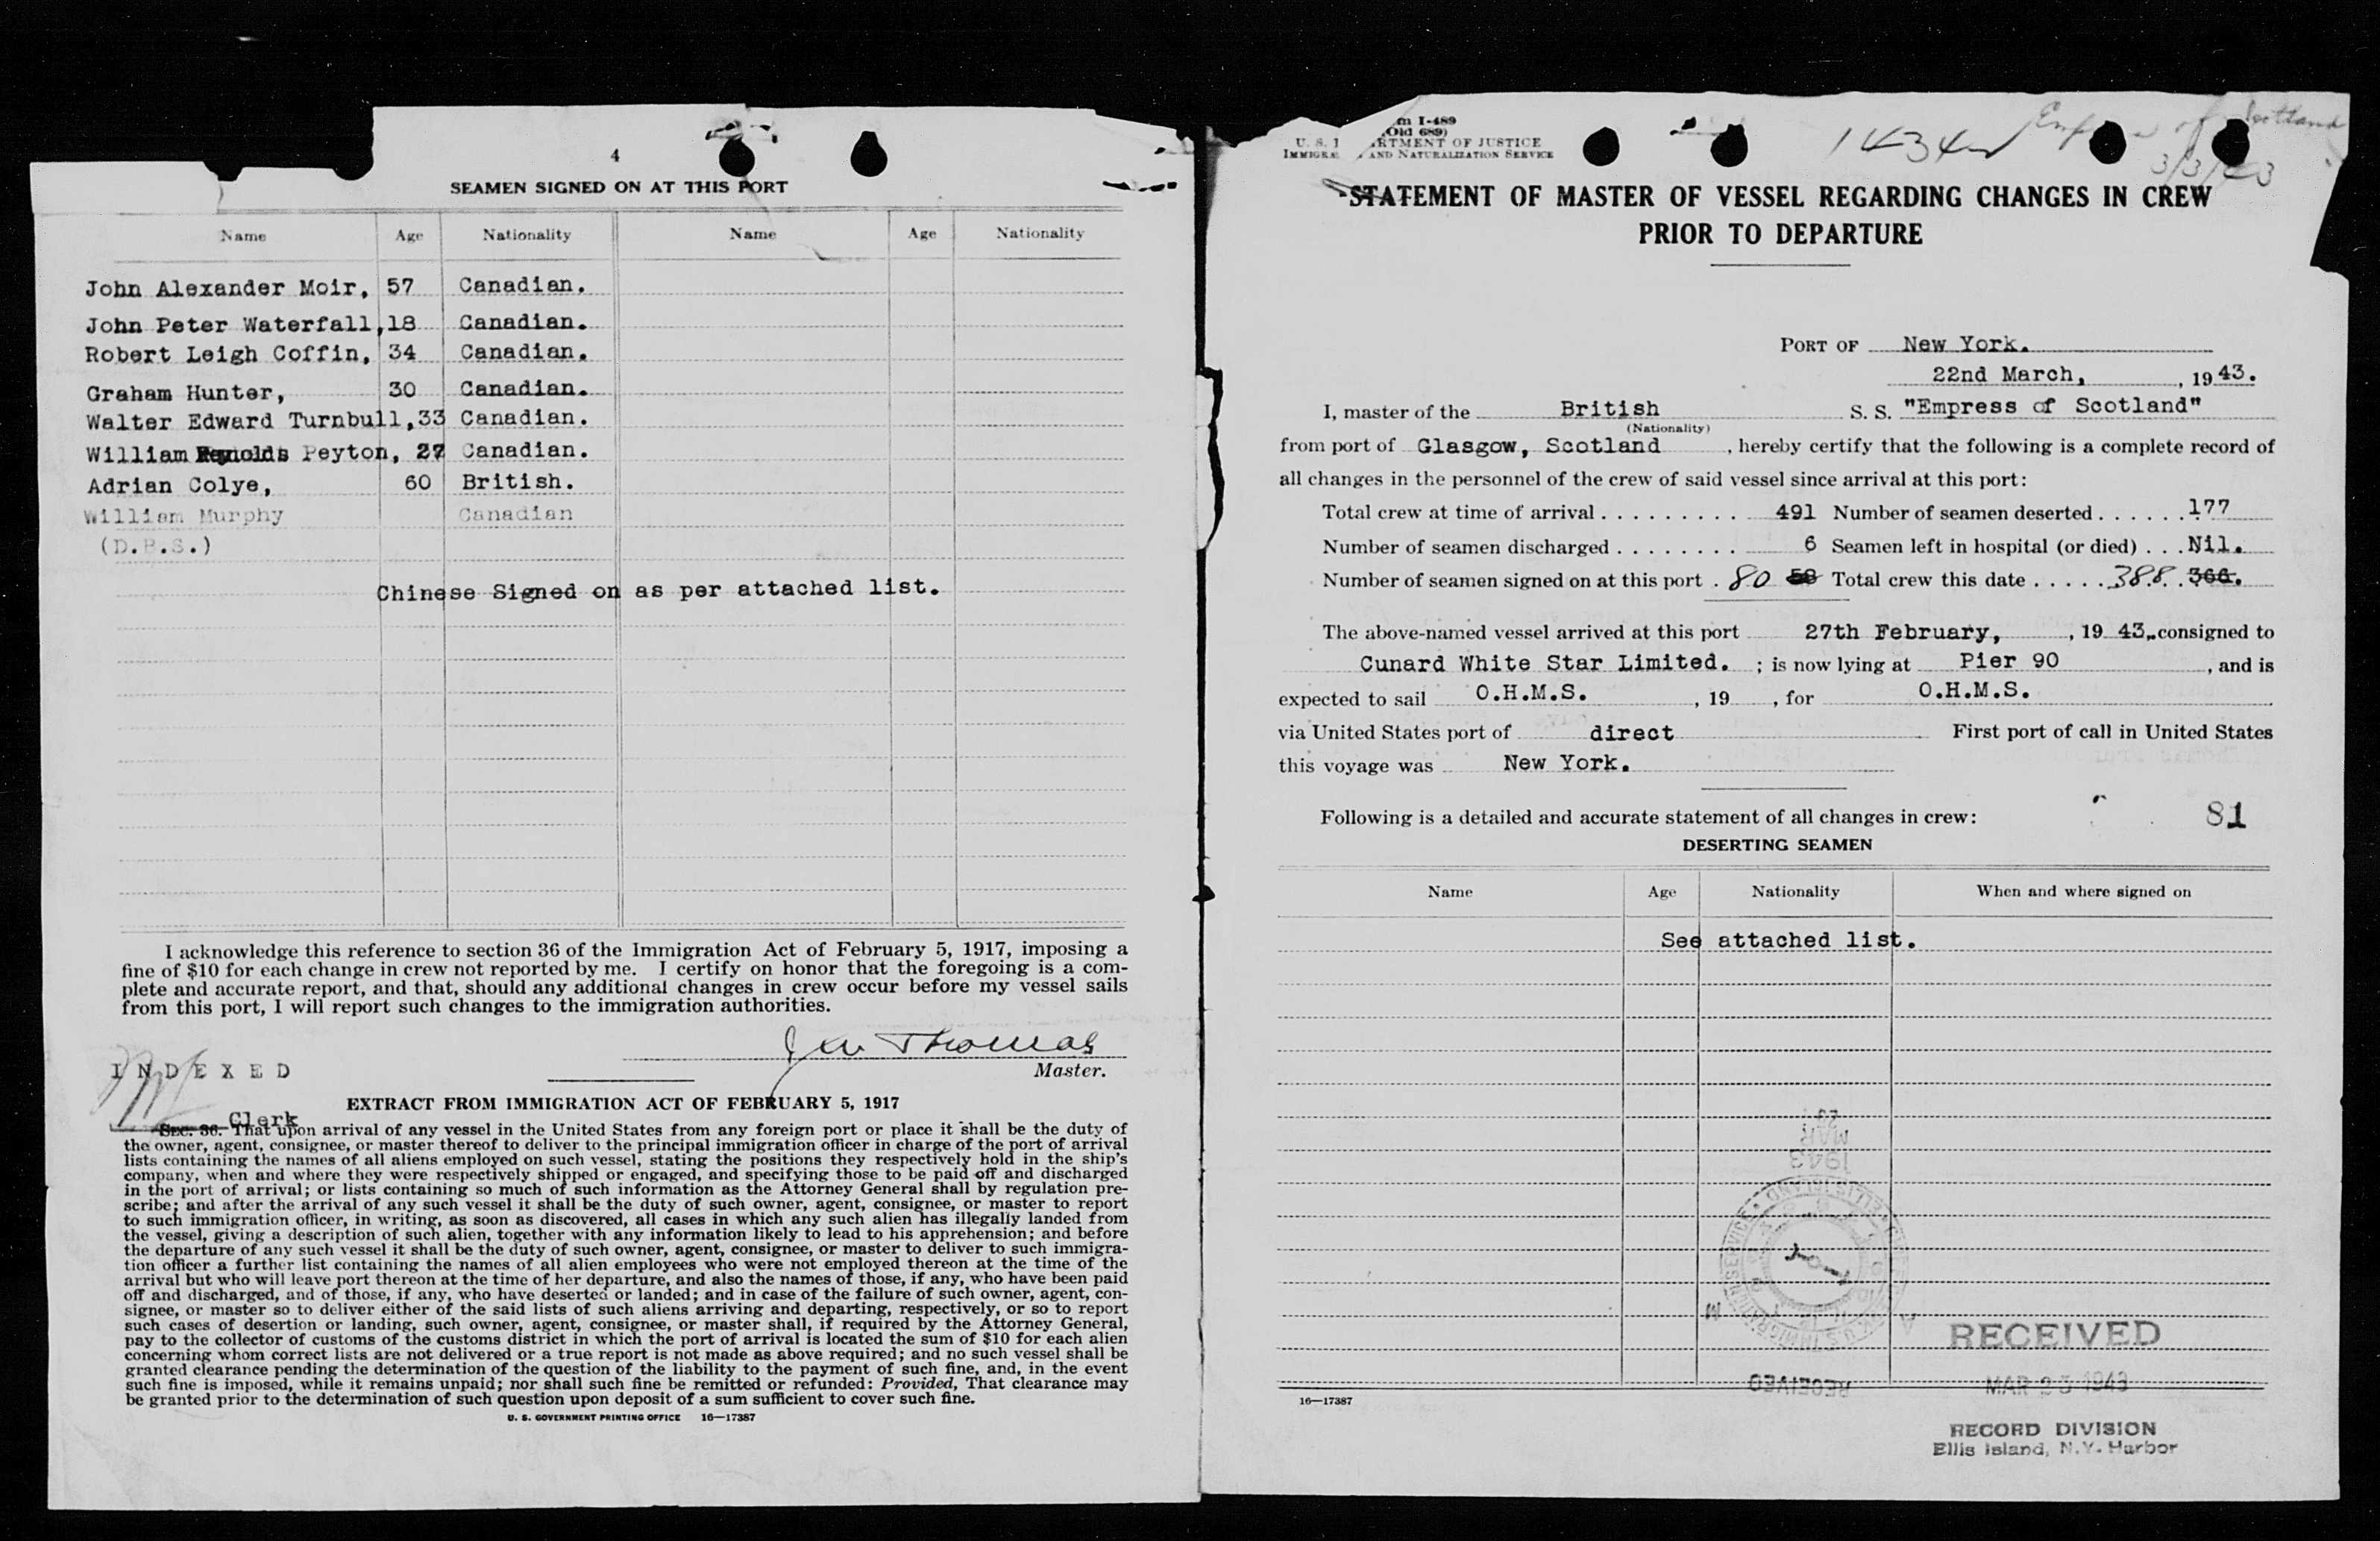 4
SEAMEN SIGNED ON AT THIS PORT
Name Age Nationality Name Age Nationality
John Alexander Moir, 57 Canadian.
John Peter Waterfall, 18 Canadian.
Robert Leigh Coffin, 34 Canadian.
Graham Hunter, 30 Canadian.
Walter Edward Turnbull, 33 Canadian.
William Reynolds Peyton, 27 Canadian.
Adrian Colye, 60 British.
William Murphy Canadian
(D.B.S.)
Chinese Signed on as per attached list.
I acknowledge this reference to section 36 of the Immigration Act of February 5, 1917, imposing a
fine of $10 for each change in crew not reported by me. I certify on honor that the foregoing is a com-
plete and accurate report, and that, should any additional changes in crew occur before my vessel sails
from this port, I will report such changes to the immigration authorities.
J W Thomas
INDEXED Master.
EXTRACT FROM IMMIGRATION ACT OF FEBRUARY 5, 1917
Clerk
SEC. 36. That upon arrival of any vessel in the United States from any foreign port or place it shall be the duty of
the owner, agent, consignee, or master thereof to deliver to the principal immigration officer in charge of the port of arrival
lists containing the names of all aliens employed on such vessel, stating the positions they respectively hold in the ship's
company, when and where they were respectively shipped or engaged, and specifying those to be paid off and discharged
in the port of arrival; or lists containing so much of such information as the Attorney General shall by regulation pre-
scribe; and after the arrival of any such vessel it shall be the duty of such owner, agent, consignee, or master to report
to such immigration officer, in writing, as soon as discovered, all cases in which any such alien has illegally landed from
the vessel, giving a description of such alien, together with any information likely to lead to his apprehension; and before
the departure of any such vessel it shall be the duty of such owner, agent, consignee, or master to deliver to such immigra-
tion officer a further list containing the names of all alien employees who were not employed thereon at the time of the
arrival but who will leave port thereon at the time of her departure, and also the names of those, if any, who have been paid
off and discharged, and of those, if any, who have deserted or landed; and in case of the failure of such owner, agent, con-
signee, or master so to deliver either of the said lists of such aliens arriving and departing, respectively, or so to report
such cases of desertion or landing, such owner, agent, consignee, or master shall, if required by the Attorney General,
pay to the collector of customs of the customs district in which the port of arrival is located the sum of $10 for each alien
concerning whom correct lists are not delivered or a true report is not made as above required; and no such vessel shall be
granted clearance pending the determination of the question of the liability to the payment of such fine, and, in the event
such fine is imposed, while it remains unpaid; nor shall such fine be remitted or refunded: Provided, That clearance may
be granted prior to the determination of such question upon deposit of a sum sufficient to cover such fine.
U. S. GOVERNMENT PRINTING OFFICE 16—17387
m I-489
(Old 689)
U. S. RTMENT OF JUSTICE
IMMIGRA AND NATURALIZATION SERVICE
Scotland
3/3/43
STATEMENT OF MASTER OF VESSEL REGARDING CHANGES IN CREW
PRIOR TO DEPARTURE
PORT OF New York.
22nd March, , 19 43.
I, master of the British S. S. "Empress of Scotland"
(Nationality)
from port of Glasgow, Scotland , hereby certify that the following is a complete record of
all changes in the personnel of the crew of said vessel since arrival at this port:
Total crew at time of arrival . . . . . . . . . . 491 Number of seamen deserted . . . . . . 177
Number of seamen discharged . . . . . . . . 6 Seamen left in hospital (or died) . . . Nil.
Number of seamen signed on at this port . 80 58 Total crew this date . . . . . 388. 366.
The above-named vessel arrived at this port 27th February, , 19 43, consigned to
Cunard White Star Limited. ; is now lying at Pier 90 , and is
expected to sail O.H.M.S. , 19 , for O.H.M.S.
via United States port of direct First port of call in United States
this voyage was New York.
Following is a detailed and accurate statement of all changes in crew: 81
DESERTING SEAMEN
Name Age Nationality When and where signed on
See attached list.
MAR
1943
RECEIVED
RECEIVED
MAR 23 1943
16—17387
RECORD DIVISION
Ellis Island, N.Y. Harbor